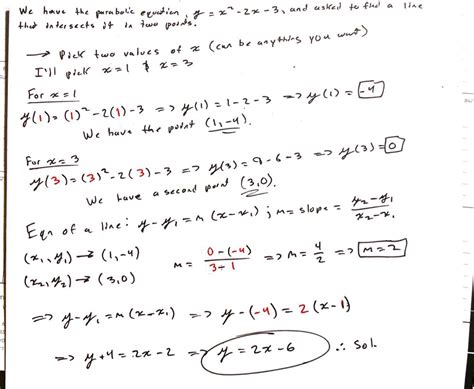 We have the parabolic equation, y = x² - 2x - 3, and asked to find a line
that intersects it in two points.
→ Pick two values of x (can be anything you want)
I'll pick x = 1 & x = 3
For x = 1
y(1) = (1)² - 2(1) - 3 => y(1) = 1 - 2 - 3 => y(1) = -4
We have the point (1,-4).
For x = 3
y(3) = (3)² - 2(3) - 3 => y(3) = 9 - 6 - 3 => y(3) = 0
We have a second point (3,0).
Eqn of a line: y - y₁ = m(x - x₁) ; m = slope = y₂ - y₁ / x₂ - x₁
(x₁, y₁) → (1,-4)
(x₂, y₂) → (3,0)
m = 0 - (-4) / 3 - 1 => m = 4 / 2 => m = 2
=> y - y₁ = m(x - x₁) => y - (-4) = 2(x - 1)
=> y + 4 = 2x - 2 => y = 2x - 6 ∴ Sol.